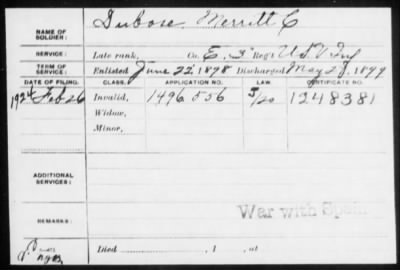 NAME OF SOLDIER: Dubose, Merritt C
SERVICE: Late rank, Co. E. 3" Reg't U.S.V. Inf
TERM OF SERVICE: Enlisted June 22, 1898 Discharged May 2, 1899
DATE OF FILING. CLASS. APPLICATION NO. LAW. CERTIFICATE NO.
Feb 26 Invalid, 1496 556 5/20 1248381
Widow,
Minor,
ADDITIONAL SERVICES:
War with Spain
REMARKS:
Died , 1 , at